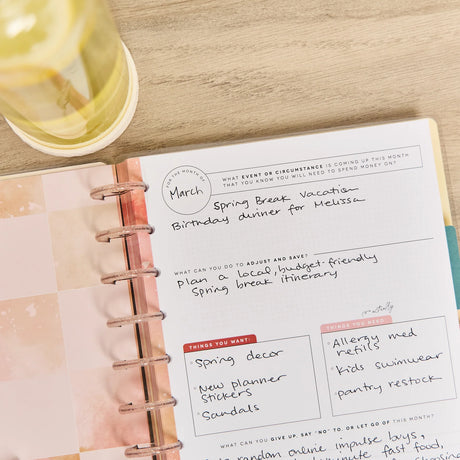 FOR THE MONTH OF
March
WHAT EVENT OR CIRCUMSTANCE IS COMING UP THIS MONTH
THAT YOU KNOW YOU WILL NEED TO SPEND MONEY ON?
Spring Break Vacation
Birthday dinner for Melissa
WHAT CAN YOU DO TO ADJUST AND SAVE?
Plan a local, budget-friendly
Spring break itinerary
THINGS YOU WANT:
Spring decor
New planner
stickers
Sandals
actually
THINGS YOU NEED:
Allergy med
refills
Kids swimwear
pantry restock
WHAT CAN YOU GIVE UP, SAY "NO" TO, OR LET GO OF THIS MONTH?
random online impulse buys,
minute fast food,